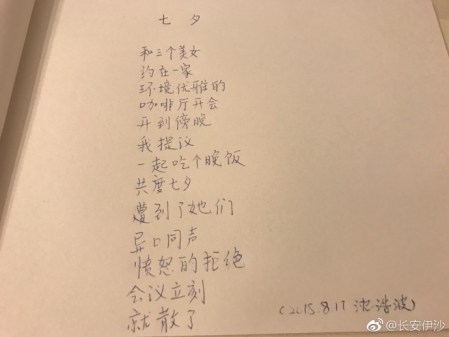 七夕
和三个美女
约在一家
环境优雅的
咖啡厅开会
开到傍晚
我提议
一起吃个晚饭
共度七夕
遭到了她们
异口同声
愤怒的拒绝
会议立刻
就散了
(2015.8.17 沈浩波)
@长安伊沙